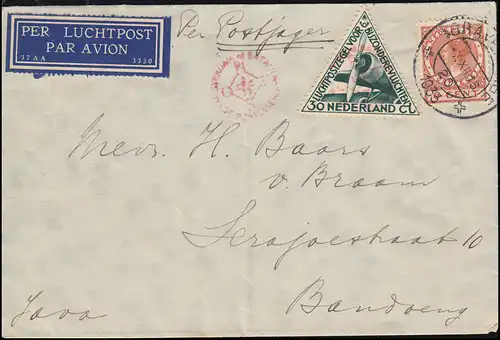 PER LUCHTPOST
PAR AVION
37AA 3730
Per Postjager
LUCHTPOSTZEGEL VOOR BIJZONDERE VLUCHTEN
30 NEDERLAND CT
Mevr. H. Baars
v. Braam
Serajoestraat 10
Bandoeng
Java